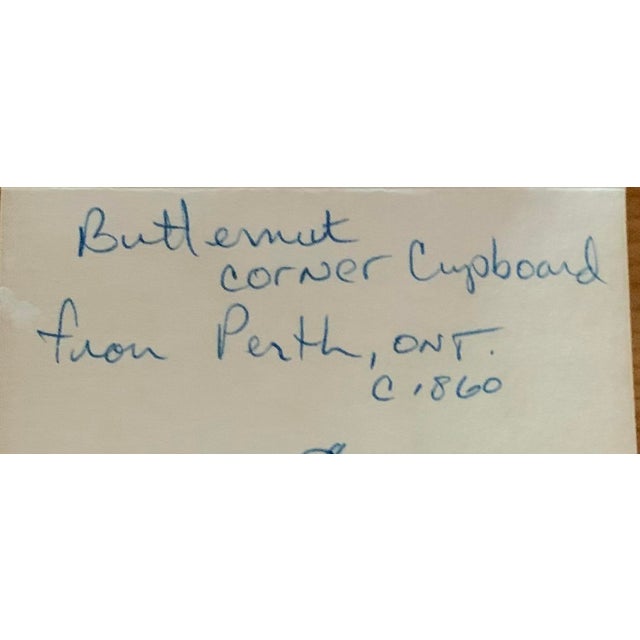 Butternut
corner Cupboard
from Perth, ONT.
C 1860